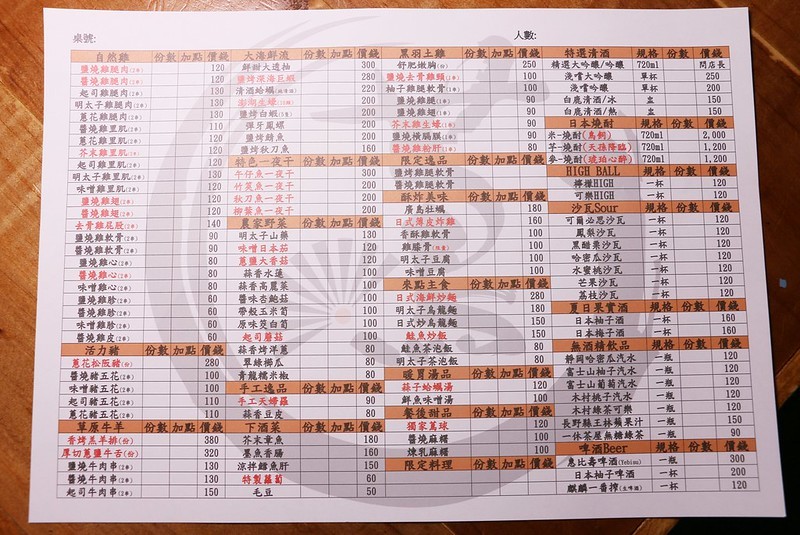 桌號:
人數:
自然雞 份數 加點 價錢
鹽燒雞腿肉(2串) 120
醬燒雞腿肉(2串) 120
起司雞腿肉(2串) 130
明太子雞腿肉(2串)
蔥花雞腿肉(2串)
鹽燒雞里肌(2串)
醬燒雞里肌(2串)
芥末雞里肌
起司雞里肌(2串)
明太子雞里肌(2串) 130
味噌雞里肌(2串)
鹽燒雞翅(2串) 120
醬燒雞翅(2串) 120
去骨雞屁股(2串) 140
鹽燒雞軟骨(2串) 90
醬燒雞軟骨(2串) 90
鹽燒雞心(2串)
醬燒雞心(2串)
味噌雞心(2串)
鹽燒雞胗(2串) 60
醬燒雞胗(2串) 60
味噌雞胗(2串) 60
醬燒雞皮(2串) 60
活力豬 份數 加點 價錢
蔥花松阪豬(份) 280
醬燒豬五花(2串) 100
味噌豬五花(2串) 100
起司豬五花(2串) 110
蔥花豬五花(2串) 110
草原牛羊 份數 加點 價錢
香烤羔羊排(份) 380
厚切蔥鹽牛舌(份) 320
鹽燒牛肉串(2串) 130
醬燒牛肉串(2串) 130
起司牛肉串(2串) 150
大海鮮派 份數 加點 價錢
鮮甜大透抽 300
鹽烤深海巨蝦 280
清酒蛤蠣 200
澎湖生蠔 200
鹽烤白蝦 200
彈牙鳳螺 200
鹽烤鯖魚 200
鹽烤秋刀魚 160
特色一夜干 份數 加點 價錢
午仔魚一夜干 300
竹筴魚一夜干 200
秋刀魚一夜干 200
柳葉魚一夜干 200
農家野菜 份數 加點 價錢
明太子山藥 130
味噌日本茄 120
蔥鹽大香菇 100
蒜香水蓮 100
蒜香高麗菜 100
醬味杏鮑菇 100
帶殼玉米筍 100
原味茭白筍 100
起司蘑菇 100
蒜香烤洋蔥 80
翠綠櫛瓜 80
青龍糯米椒 80
手工逸品 份數 加點 價錢
手工天婦羅 90
蒜香豆皮 80
下酒菜 份數 加點 價錢
芥末章魚 180
墨魚香腸 160
涼拌鱈魚肝 150
特製蘿蔔 60
毛豆 50
黑羽土雞 份數 加點 價錢
舒肥嫩胸(份) 250
鹽燒去骨雞頸(1串) 100
柚子雞軟骨(1串) 100
鹽燒雞腿(1串) 90
醬燒雞腿(1串) 90
芥末雞生蠔(1串) 90
鹽燒橫膈膜(2串) 90
醬燒雞粉肝(1串) 80
限定逸品 份數 加點 價錢
鹽燒雞腿軟骨
醬燒雞腿軟骨
酥炸美味 份數 加點 價錢
廣島牡蠣 180
日式薄皮炸雞 160
香酥雞軟骨 100
雞膝骨(限量) 100
明太子豆腐 120
味噌豆腐 100
來點主食 份數 加點 價錢
日式海鮮炒麵 280
明太子烏龍麵 180
日式炒烏龍麵 150
鮭魚炒飯 150
鮭魚茶泡飯 150
明太子茶泡飯 150
暖胃湯品 份數 加點 價錢
蒜子蛤蠣湯 120
鮮魚味噌湯 100
餐後甜品 份數 加點 價錢
獨家蔦球 120
醬燒麻糬 100
煉乳麻糬 100
限定料理 份數 加點 價錢
特選清酒 規格 份數 價錢
精選大吟釀/吟釀 720ml 問店長
淺嚐大吟釀 單杯 250
淺嚐吟釀 單杯 200
白鹿清酒/冰 盅 150
白鹿清酒/熱 盅 150
日本燒酎 規格 份數 價錢
米-燒酎(鳥飼) 720ml 2,000
芋-燒酎(天孫降臨) 720ml 1,200
麥-燒酎(琥珀心醉) 720ml 1,200
HIGH BALL 規格 份數 價錢
檸檬HIGH 一杯 120
可樂HIGH 一杯 120
沙瓦Sour 規格 份數 價錢
可爾必思沙瓦 一杯 120
鳳梨沙瓦 一杯 120
黑醋栗沙瓦 一杯 120
哈密瓜沙瓦 一杯 120
水蜜桃沙瓦 一杯 120
芒果沙瓦 一杯 120
荔枝沙瓦 一杯 120
夏日果實酒 規格 份數 價錢
日本柚子酒 一杯 160
日本梅子酒 一杯 160
無酒精飲品 規格 份數 價錢
靜岡哈密瓜汽水 一瓶 120
富士山柚子汽水 一瓶 120
富士山葡萄汽水 一瓶 120
木村桃子汽水 一瓶 120
木村綠茶可樂 一瓶 120
長野縣王林蘋果汁 一瓶 150
一休茶屋無糖綠茶 一瓶 90
啤酒Beer 規格 份數 價錢
惠比壽啤酒(Yebisu) 一瓶 300
日本柚子啤酒 一杯 200
麒麟一番搾(生啤酒) 一杯 120